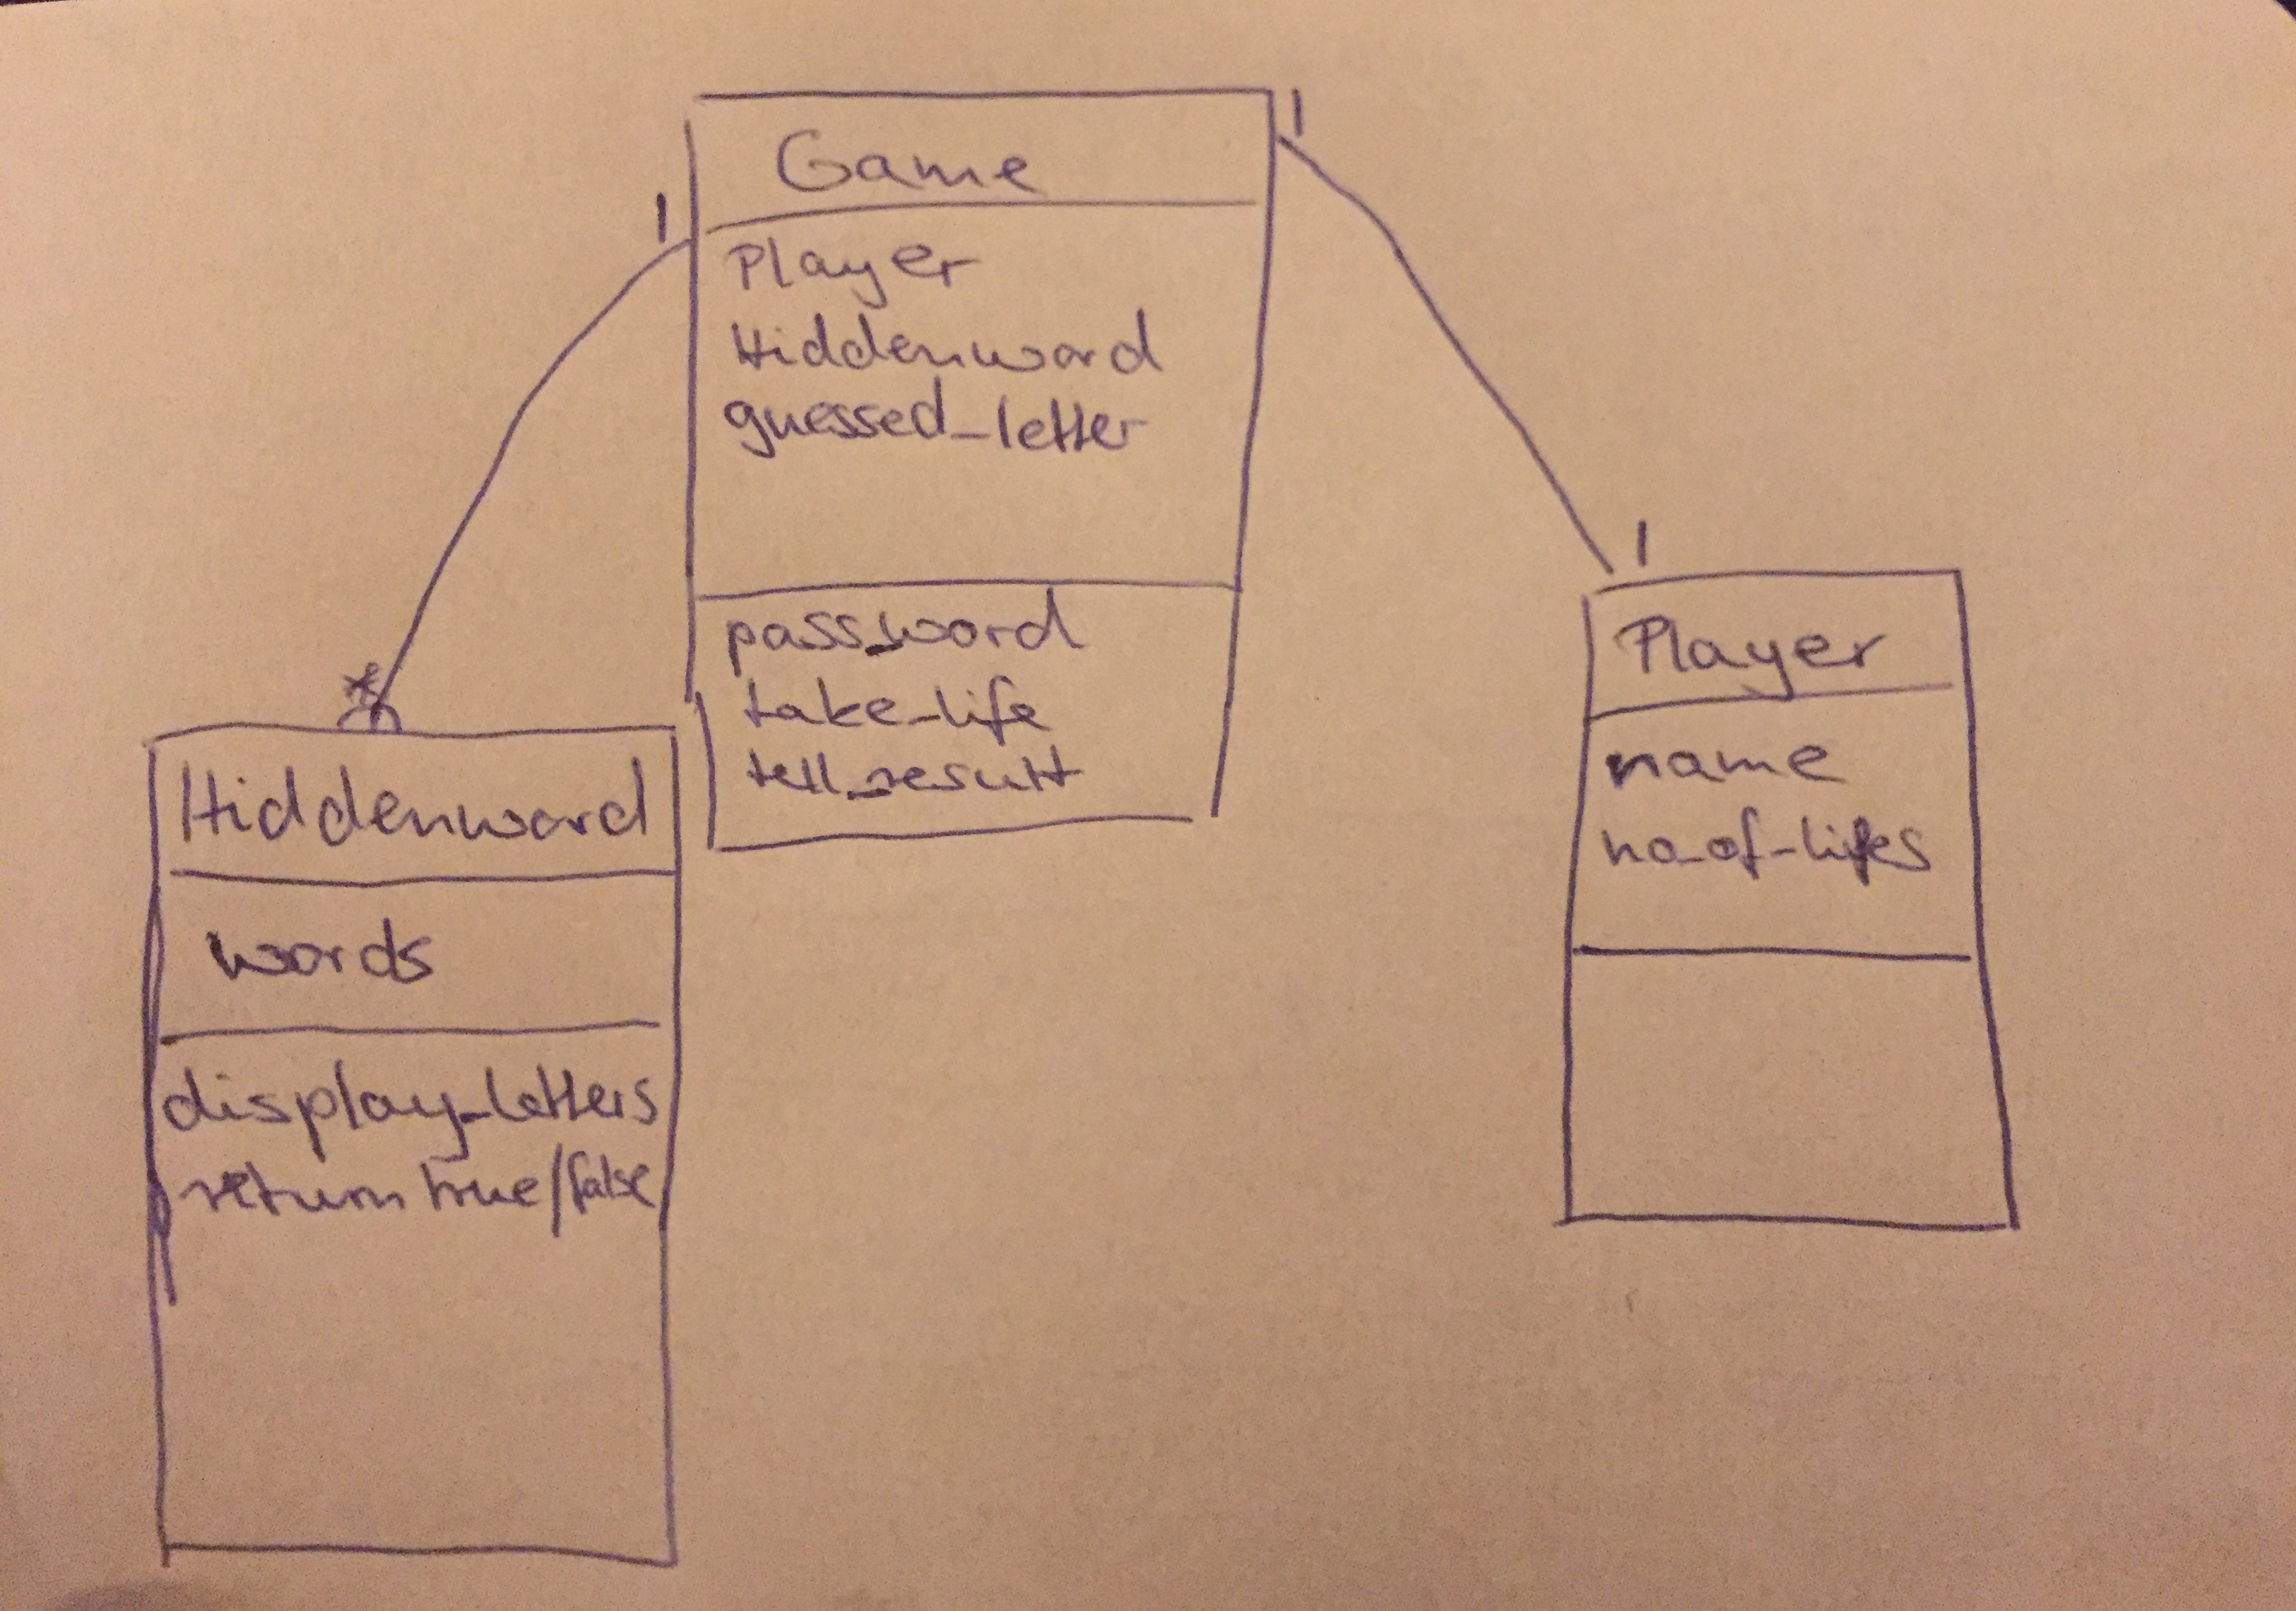 1
Game
1
Player
Hiddenword
guessed_letter
pass_word
take_life
tell_result
*
Hiddenword
words
display_letters
return true/false
1
Player
name
no_of_lifes